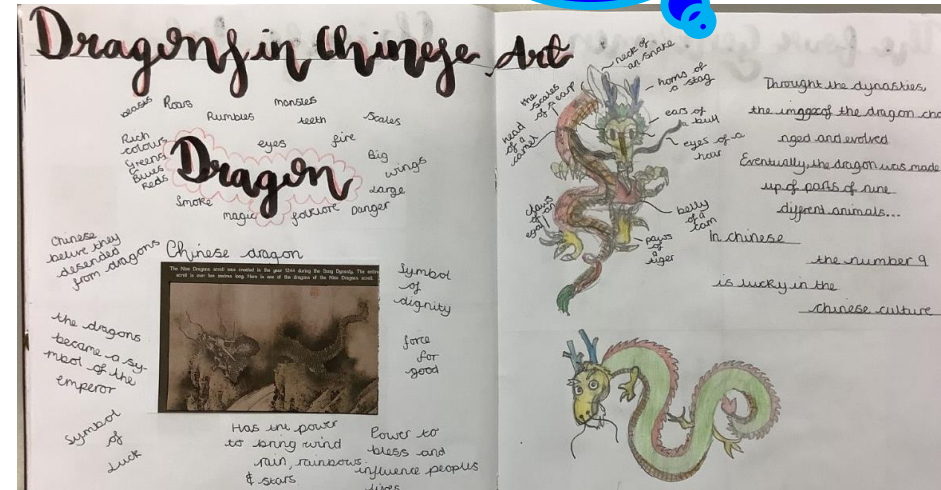 Dragons in Chinese Art
beasts
Roars
monsters
Rumbles
teeth
Scales
Rich
colours
Greens
Blues
Reds
eyes
fire
Big
wings
Large
Dragon
Smoke
magic
folklore
Danger
Chinese
belive they
desended
from dragons
Chinese dragon
The Nine Dragons scroll was created in the year 1244 during the Song Dynasty. The entire
scroll is over ten metres long. Here is one of the dragons of the Nine Dragons scroll.
Symbol
of
dignity
the dragons
became a sy-
mbol of the
emperor
force
for
good
Symbol
of
Luck
Has the power
to bring wind
rain, rainbows
& stars
Power to
bless and
influence peoples
lives
neck of
an snake
horns of
a stag
the
scales
of a carp
ears of
a bull
head
of a
camel
eyes of a
claws
of an
egal
belly
of a
clam
paws
of a
tiger
Throught the dynasties,
the image of the dragon cha
nged and evolved
Eventually, the dragon was made
up of parts of nine
different animals...
In chinese
the number 9
is lucky in the
chinese culture